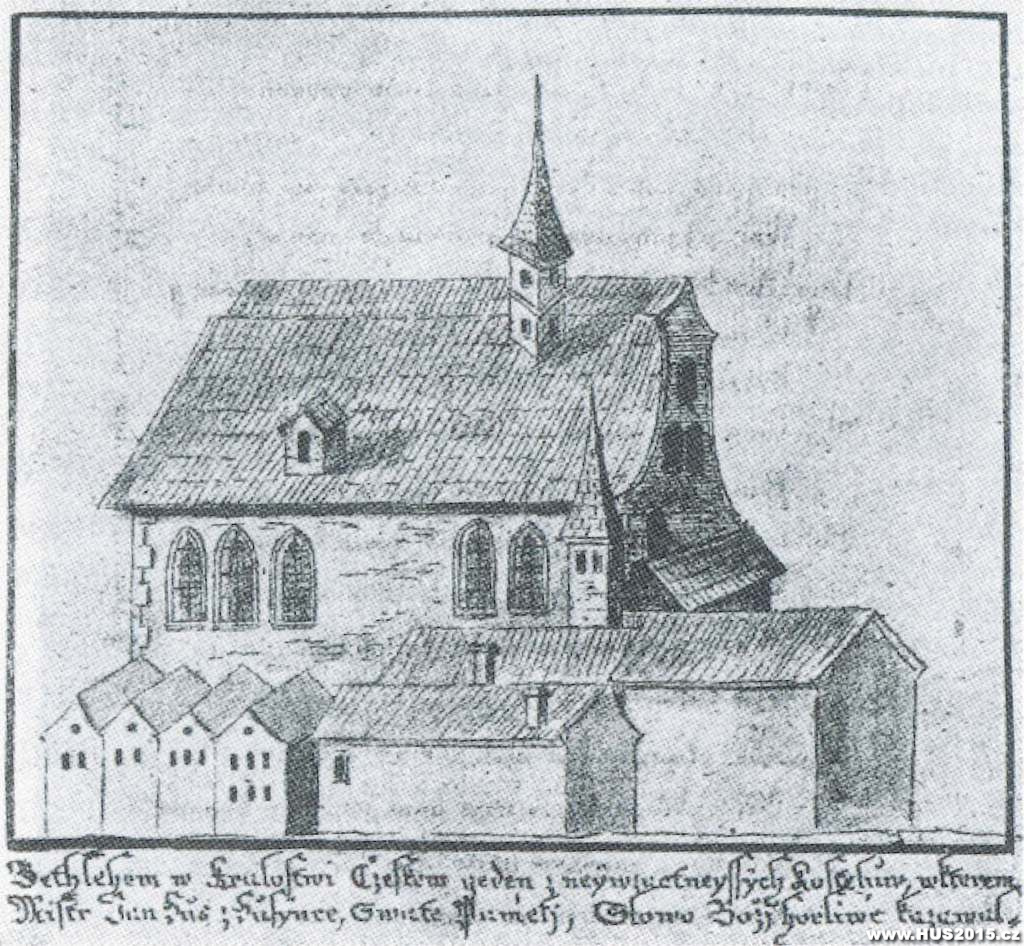 Bethlehem w Kralostwi Czeskem yeden z neywzactneyssych Kosteluw, wkterem
Mistr Jan Hus z Husynce, Swate Pameti, Slowo Bozj horliwe kazawal.
www.HUS2015.cz